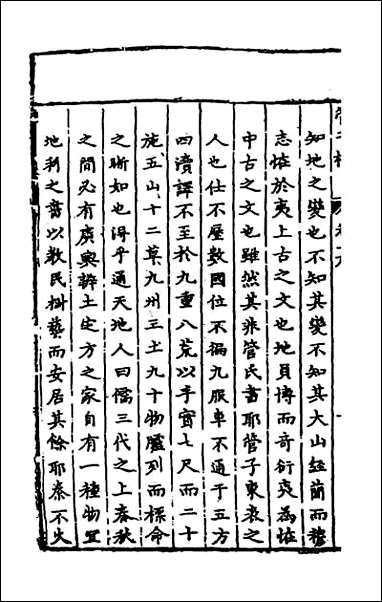 知地之變也不知其變不知其大山經簡而穆
志怪於夷上古之文也地員博而奇衍爽為怪
中古之文也雖然其非管氏書耶管子東表之
人也仕不歷數國位不徧九服車不通于五方
四瀆譯不至於九重八荒以手實七尺而二十
施五山十二草九州三土九十物臚列而標命
之晰如也得乎通天地人曰儒三代之上春秋
之間必有廣輿辨土定方之家自有一種物宜
地利之書以教民樹藝而安居其餘耶秦不火